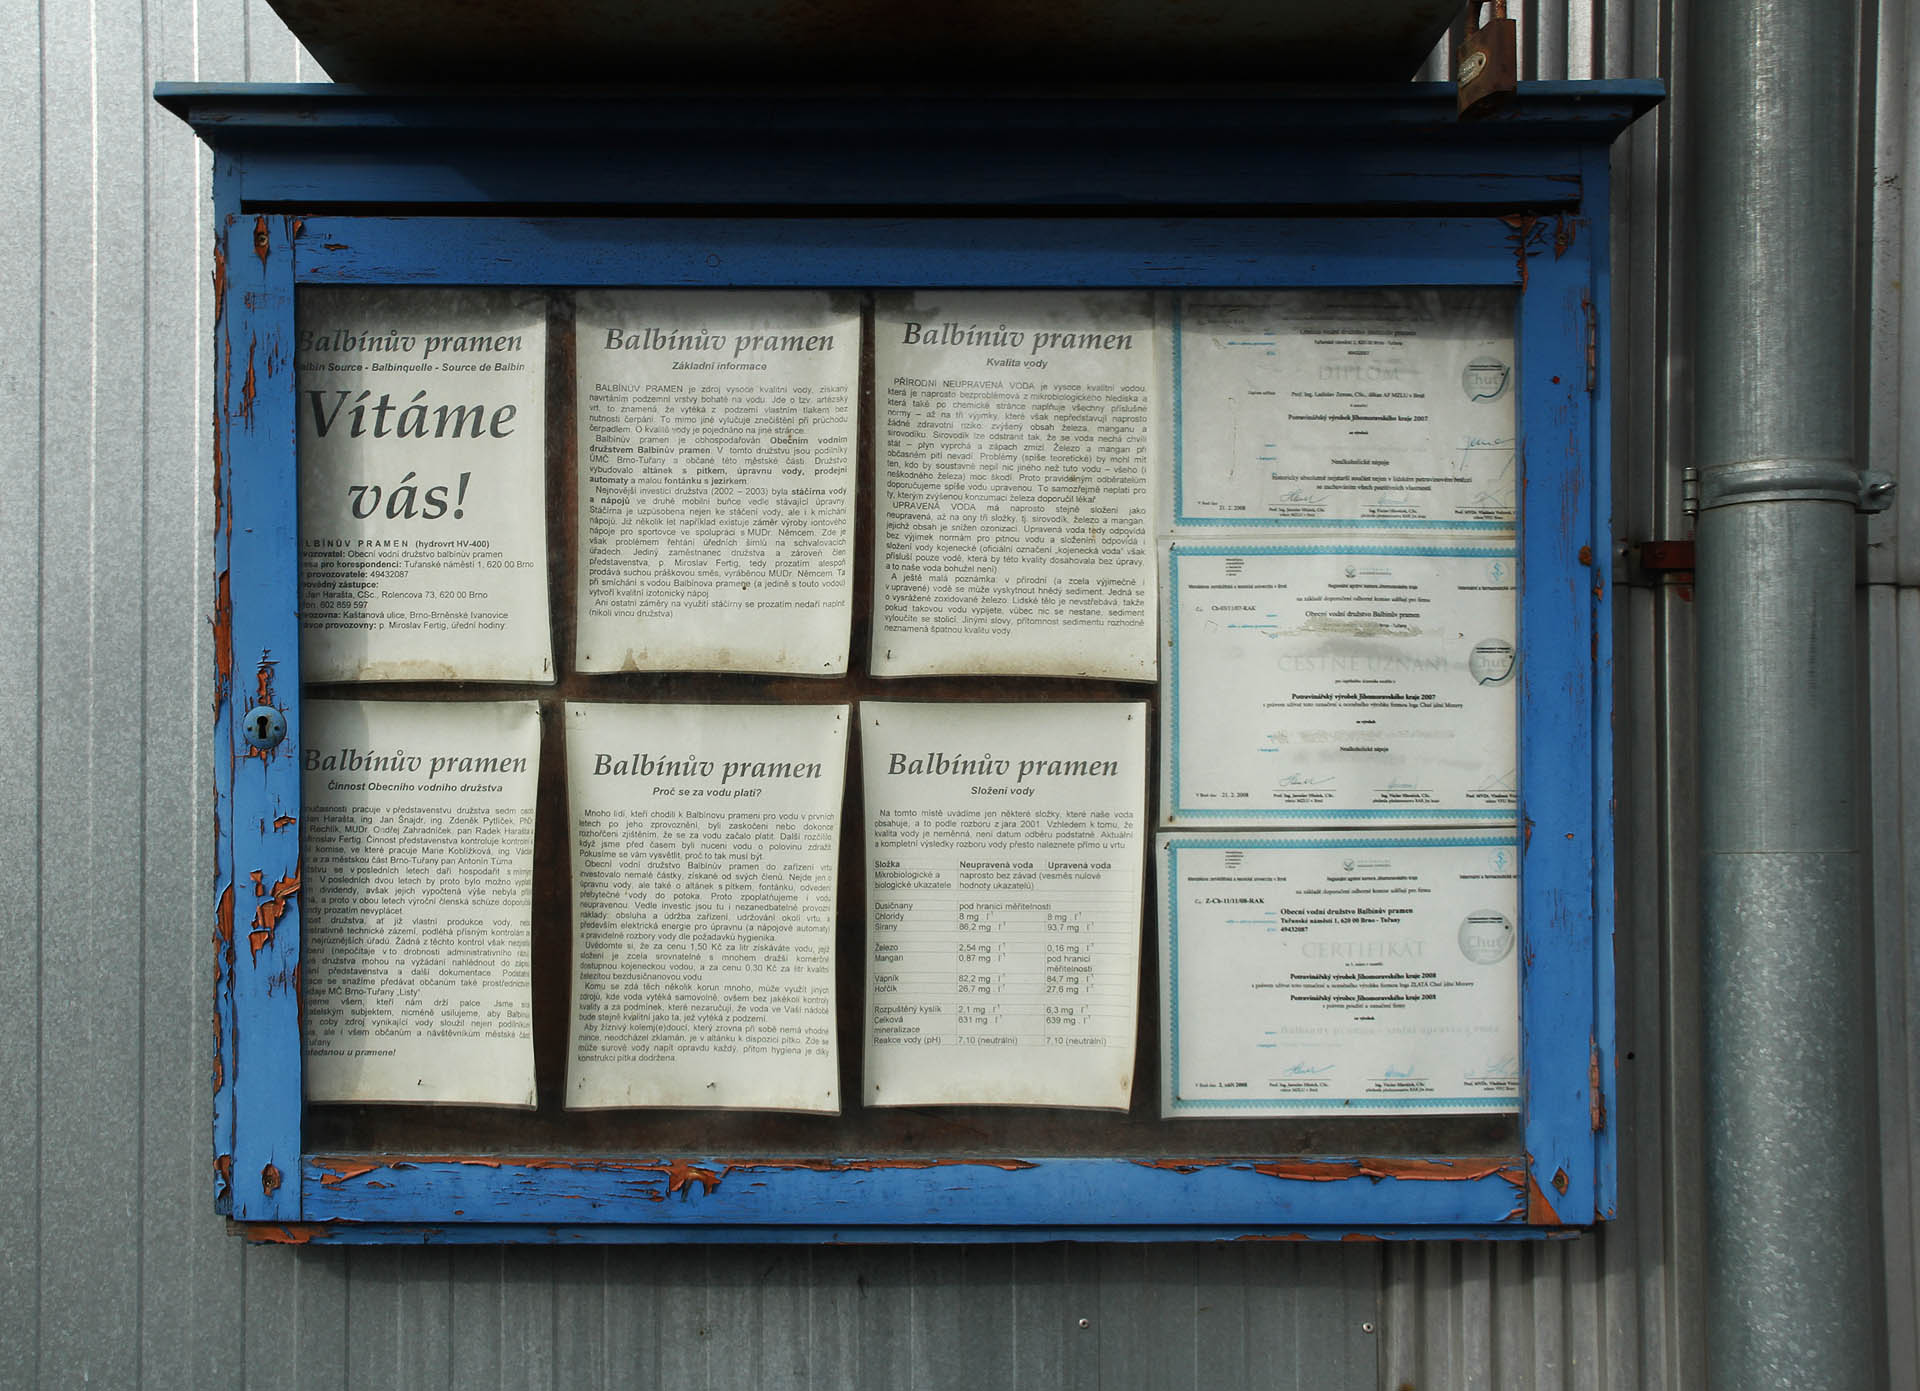 Balbínův pramen
Balbin Source - Balbinquelle - Source de Balbin
Vítáme
vás!
BALBÍNŮV PRAMEN (hydrovrt HV-400)
Provozovatel: Obecní vodní družstvo balbínův pramen
pro korespondenci: Tuřanské náměstí 1, 620 00 Brno
provozovatele: 49432087
zástupce:
Jan Harašta, CSc., Rolencova 73, 620 00 Brno
602 859 597
Kaštanová ulice, Brno-Brněnské Ivanovice
provozovny: p. Miroslav Fertig, úřední hodiny:
Balbínův pramen
Základní informace
BALBÍNŮV PRAMEN je zdroj vysoce kvalitní vody, získaný
navrtáním podzemní vrstvy bohaté na vodu. Jde o tzv. artézský
vrt, to znamená, že vytéká z podzemí vlastním tlakem bez
nutnosti čerpání. To mimo jiné vylučuje znečištění při průchodu
čerpadlem. O kvalitě vody je pojednáno na jiné stránce.
Balbínův pramen je obhospodařován Obecním vodním
družstvem Balbínův pramen. V tomto družstvu jsou podílníky
ÚMČ Brno-Tuřany a občané této městské části. Družstvo
vybudovalo altánek s pítkem, úpravnu vody, prodejní
automaty a malou fontánku s jezírkem.
Nejnovější investicí družstva (2002 – 2003) byla stáčírna vody
a nápojů ve druhé mobilní buňce vedle stávající úpravny.
Stáčírna je uzpůsobena nejen ke stáčení vody, ale i k míchání
nápojů. Již několik let například existuje záměr výroby iontového
nápoje pro sportovce ve spolupráci s MUDr. Němcem. Zde je
však problémem řehtání úředních šimlů na schvalovacích
úřadech. Jediný zaměstnanec družstva a zároveň člen
představenstva, p. Miroslav Fertig, tedy prozatím alespoň
prodává suchou práškovou směs, vyráběnou MUDr. Němcem. Ta
při smíchání s vodou Balbínova pramene (a jedině s touto vodou)
vytvoří kvalitní izotonický nápoj.
Ani ostatní záměry na využití stáčírny se prozatím nedaří naplnit
(nikoli vinou družstva).
Balbínův pramen
Kvalita vody
PŘÍRODNÍ NEUPRAVENÁ VODA je vysoce kvalitní vodou,
která je naprosto bezproblémová z mikrobiologického hlediska a
která také po chemické stránce naplňuje všechny příslušné
normy – až na tři výjimky, které však nepředstavují naprosto
žádné zdravotní riziko: zvýšený obsah železa, manganu a
sirovodíku. Sirovodík lze odstranit tak, že se voda nechá chvíli
stát – plyn vyprchá a zápach zmizí. Železo a mangan při
občasném pití nevadí. Problémy (spíše teoretické) by mohl mít
ten, kdo by soustavně nepil nic jiného než tuto vodu – všeho (i
neškodného železa) moc škodí. Proto pravidelným odběratelům
doporučujeme spíše vodu upravenou. To samozřejmě neplatí pro
ty, kterým zvýšenou konzumaci železa doporučil lékař.
UPRAVENÁ VODA má naprosto stejné složení jako
neupravená, až na ony tři složky, tj. sirovodík, železo a mangan,
jejichž obsah je snížen ozonizací. Upravená voda tedy odpovídá
bez výjimek normám pro pitnou vodu a složením odpovídá i
složení vody kojenecké (oficiální označení „kojenecká voda“ však
přísluší pouze vodě, která by této kvality dosahovala bez úpravy,
a to naše voda bohužel není).
A ještě malá poznámka: v přírodní (a zcela výjimečně i
v upravené) vodě se může vyskytnout hnědý sediment. Jedná se
o vysrážené zoxidované železo. Lidské tělo je nevstřebává, takže
pokud takovou vodu vypijete, vůbec nic se nestane, sediment
vyloučíte se stolicí. Jinými slovy, přítomnost sedimentu rozhodně
neznamená špatnou kvalitu vody.
Balbínův pramen
Činnost Obecního vodního družstva
pracuje v představenstvu družstva sedm
Jan Harašta, ing. Jan Šnajdr, ing. Zdeněk Pytlíček, PhD
Rechlík, MUDr. Ondřej Zahradníček, pan Radek Harašta
Miroslav Fertig. Činnost představenstva kontroluje kontrolní
komise, ve které pracuje Marie Koblížková, ing.
a za městskou část Brno-Tuřany pan Antonín Tůma.
se v posledních letech daří hospodařit s
V posledních dvou letech by proto bylo možno
dividendy, avšak jejich vypočtená výše nebyla
a proto v obou letech výroční členská schůze
prozatím nevyplácet.
ať již vlastní produkce vody,
technické zázemí, podléhá přísným kontrolám
nejrůznějších úřadů. Žádná z těchto kontrol však
(nepočítaje v to drobnosti administrativního
družstva mohou na vyžádání nahlédnout do
představenstva a další dokumentace.
se snažíme předávat občanům také prostřednictvím
MČ Brno-Tuřany „Listy“
všem, kteří nám drží palce. Jsme
subjektem, nicméně usilujeme, aby
coby zdroj vynikající vody sloužil nejen
ale i všem občanům a návštěvníkům městské
Tuřany.
u pramene!
Balbínův pramen
Proč se za vodu platí?
Mnoho lidí, kteří chodili k Balbínovu prameni pro vodu v prvních
letech po jeho zprovoznění, byli zaskočeni nebo dokonce
rozhořčeni zjištěním, že se za vodu začalo platit. Další rozčílilo,
když jsme před časem byli nuceni vodu o polovinu zdražit.
Pokusíme se vám vysvětlit, proč to tak musí být.
Obecní vodní družstvo Balbínův pramen do zařízení vrtu
investovalo nemalé částky, získané od svých členů. Nejde jen o
úpravnu vody, ale také o altánek s pítkem, fontánku, odvedení
přebytečné vody do potoka. Proto zpoplatňujeme i vodu
neupravenou. Vedle investic jsou tu i nezanedbatelné provozní
náklady: obsluha a údržba zařízení, udržování okolí vrtu, a
především elektrická energie pro úpravnu (a nápojové automaty)
a pravidelné rozbory vody dle požadavků hygienika.
Uvědomte si, že za cenu 1,50 Kč za litr získáváte vodu, jejíž
složení je zcela srovnatelné s mnohem dražší komerčně
dostupnou kojeneckou vodou, a za cenu 0,30 Kč za litr kvalitní
železitou bezdusičnanovou vodu.
Komu se zdá těch několik korun mnoho, může využít jiných
zdrojů, kde voda vytéká samovolně, ovšem bez jakékoli kontroly
kvality a za podmínek, které nezaručují, že voda ve Vaší nádobě
bude stejně kvalitní jako ta, jež vytéká z podzemí.
Aby žíznivý kolemj(e)doucí, který zrovna při sobě nemá vhodné
mince, neodcházel zklamán, je v altánku k dispozici pítko. Zde se
může surové vody napít opravdu každý, přitom hygiena je díky
konstrukci pítka dodržena.
Balbínův pramen
Složení vody
Na tomto místě uvádíme jen některé složky, které naše voda
obsahuje, a to podle rozboru z jara 2001. Vzhledem k tomu, že
kvalita vody je neměnná, není datum odběru podstatné. Aktuální
a kompletní výsledky rozboru vody přesto naleznete přímo u vrtu.
Složka Neupravená voda Upravená voda
Mikrobiologické a naprosto bez závad (vesměs nulové
biologické ukazatele hodnoty ukazatelů)
Dusičnany pod hranicí měřitelnosti
Chloridy 8 mg . l⁻¹ 8 mg . l⁻¹
Sírany 86,2 mg . l⁻¹ 93,7 mg . l⁻¹
Železo 2,54 mg . l⁻¹ 0,16 mg . l⁻¹
Mangan 0,87 mg . l⁻¹ pod hranicí
měřitelnosti
Vápník 82,2 mg . l⁻¹ 84,7 mg . l⁻¹
Hořčík 26,7 mg . l⁻¹ 27,6 mg . l⁻¹
Rozpuštěný kyslík 2,1 mg . l⁻¹ 6,3 mg . l⁻¹
Celková 631 mg . l⁻¹ 639 mg . l⁻¹
mineralizace
Reakce vody (pH) 7,10 (neutrální) 7,10 (neutrální)
Obecní vodní družstvo Balbínův pramen
Tuřanské náměstí 1, 620 00 Brno - Tuřany
49432087
DIPLOM
Prof. Ing. Ladislav Zeman, CSc., děkan AF MZLU v Brně
Potravinářský výrobek Jihomoravského kraje 2007
Nealkoholické nápoje
21. 2. 2008
Č. Ch-03/11/07-RAK
Obecní vodní družstvo Balbínův pramen
ČESTNÉ UZNÁNÍ
Potravinářský výrobek Jihomoravského kraje 2007
Nealkoholické nápoje
V Brně dne: 21. 2. 2008
Č. Z-Ch-11/11/08-RAK
Obecní vodní družstvo Balbínův pramen
Tuřanské náměstí 1, 620 00 Brno - Tuřany
49432087
CERTIFIKÁT
Potravinářský výrobek Jihomoravského kraje 2008
Potravinářský výrobce Jihomoravského kraje 2008
V Brně dne: 2. září 2008